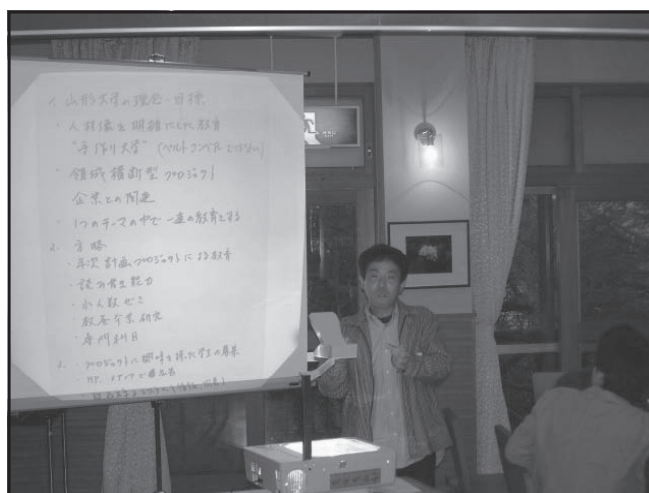 1. 山形大学の理念・目標
・人材像を明確にした教育
"手作り大学" (ベルトコンベアではない)
・領域横断型プロジェクト
企業との関連
・1つのテーマの中で一連の教育をする
2. 方略
・年次計画プロジェクトによる教育
・読み書き能力
・小人数ゼミ
・教養 企業 研究
・専門科目
3. ・プロジェクトに興味を持た 学生の募集